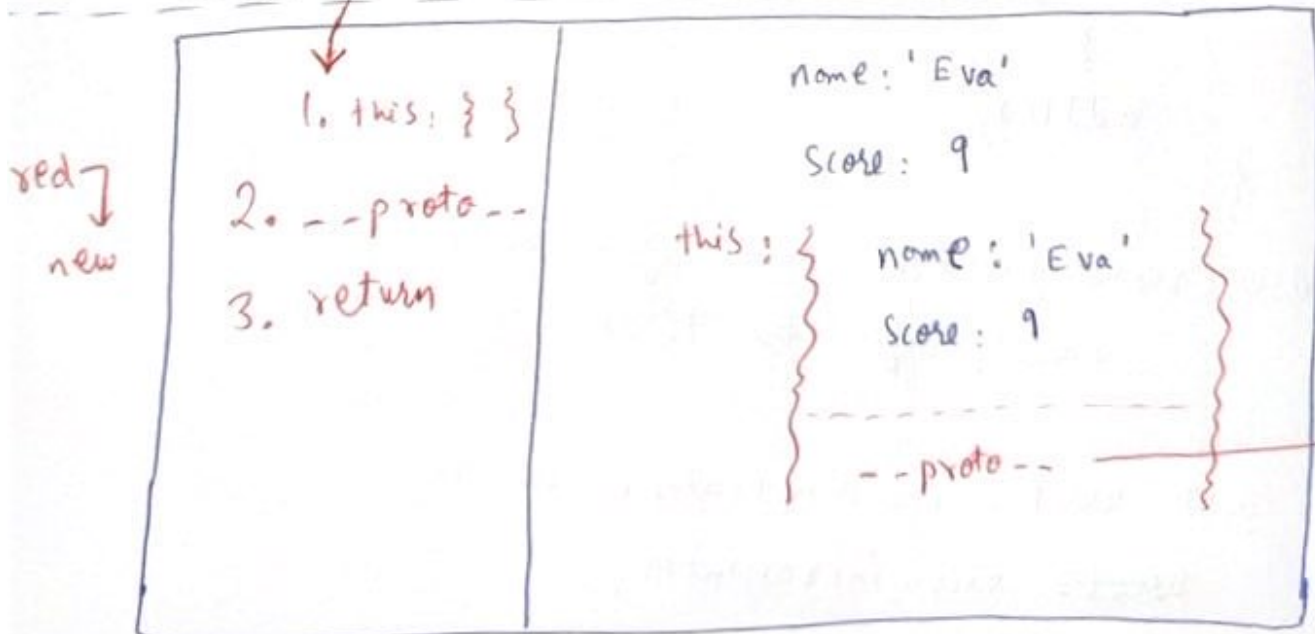 red
new
1. this: { }
2. --proto--
3. return
name: 'Eva'
Score: 9
this: {
name: 'Eva'
Score: 9
--proto--
}